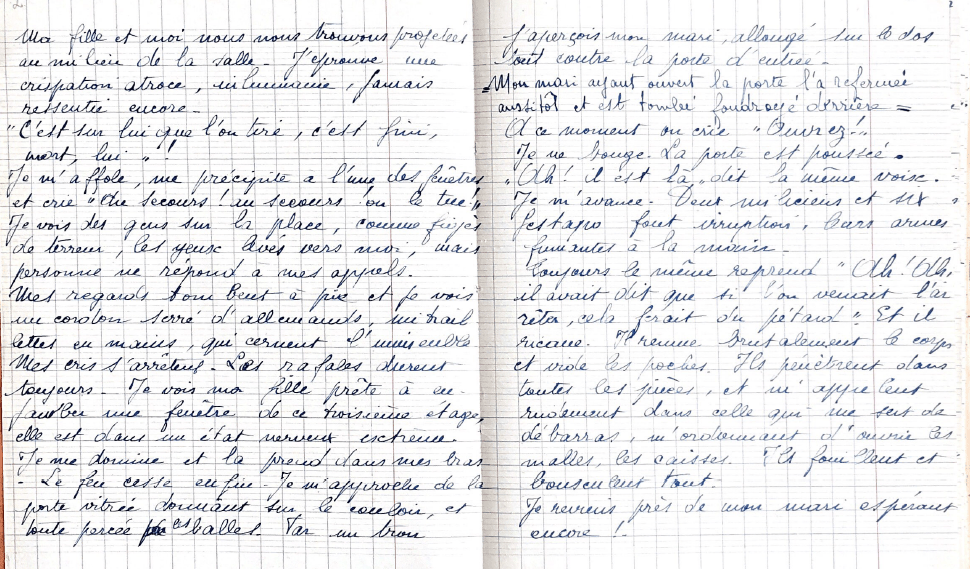 Ma fille et moi nous nous trouvons projetées
au milieu de la salle - J'éprouve une
crispation atroce, inhumaine, jamais
ressentie encore -
"C'est sur lui que l'on tire, c'est fini,
mort, lui " !
Je m'affole, me précipite a l'une des fenêtres
et crie "Au secours ! au secours ! on le tue !"
Je vois des gens sur la place, comme figés
de terreur, les yeux levés vers moi, mais
personne ne répond a mes appels.
Mes regards tombent à pic et je vois
un cordon serré d'allemands, mitrail
lettes en mains, qui cernent l'immeuble
Mes cris s'arrêtent - Les rafales durent
toujours - Je vois ma fille prête à en-
jamber une fenêtre de ce troisième etage,
elle est dans un état nerveux extrême -
Je me domine et la prend dans mes bras
- Le feu cesse enfin - Je m'approche de la
porte vitrée donnant sur le couloir, et
toute percée balles. Par un trou
2
j'aperçois mon mari, allongé sur le dos
tout contre la porte d'entrée -
Mon mari ayant ouvert la porte l'a refermée
aussitôt et est tombé foudroyé derrière =
A ce moment on crie "Ouvrez !"
Je ne bouge. La porte est poussée.
"Ah ! il est là" dit la même voix.
Je m'avance. Deux miliciens et six
gestapo font irruption, leurs armes
fumantes à la main -
Toujours le même reprend "Ah ! Ah,
il avait dit que si l'on venait l'ar
rêter, cela ferait du pétard". Et il
ricane. Il remue brutalement le corps
et vide les poches. Ils pénètrent dans
toutes les pièces, et m'appellent
rudement dans celle qui me sert de
débarras, m'ordonnant d'ouvrir les
malles, les caisses. Ils fouillent et
bousculent tout.
Je reviens près de mon mari espérant
encore !